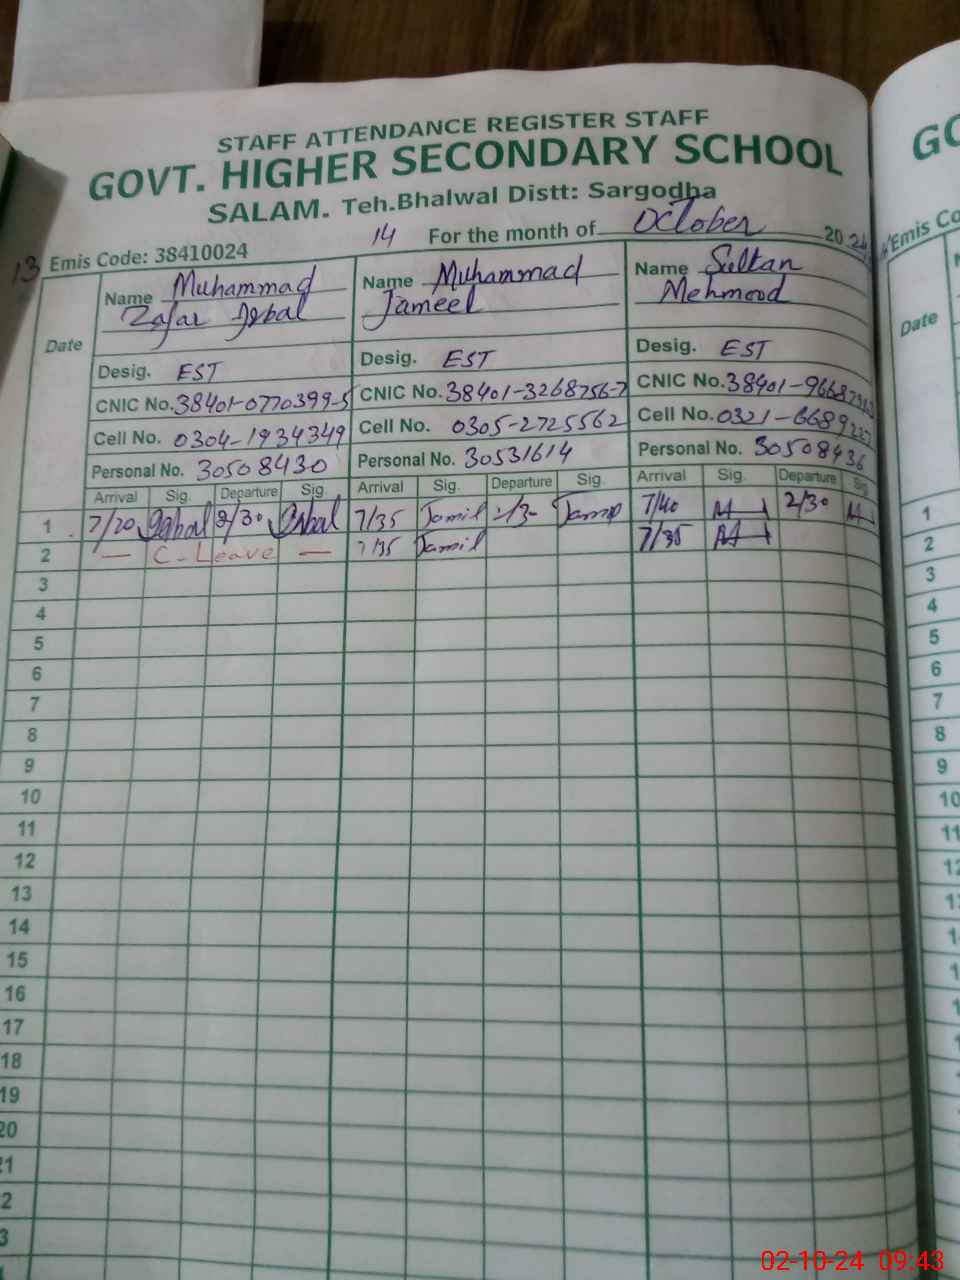 STAFF ATTENDANCE REGISTER STAFF
GOVT. HIGHER SECONDARY SCHOOL
SALAM. Teh.Bhalwal Distt: Sargodha
14 For the month of October 2024
13 Emis Code: 38410024
Date
Name Muhammad
Zafar Iqbal
Desig. EST
CNIC No. 38401-0770399-5
Cell No. 0304-1934349
Personal No. 30508430
Name Muhammad
Jameel
Desig. EST
CNIC No. 38401-3268756-7
Cell No. 0305-2725562
Personal No. 30531614
Name Sultan
Mehmood
Desig. EST
CNIC No.
Cell No. 0321-6689227
Personal No. 30508436
Arrival Sig. Departure Sig Arrival Sig. Departure Sig. Arrival Sig. Departure Sig
1 7/20 Iqbal 2/30 Iqbal 7/35 Jamil 2/30 Jamil 7/40 2/30
2 — C-Leave — 7/35 Jamil 7/35
3
4
5
6
7
8
9
10
11
12
13
14
15
16
17
18
19
20
21
2
3
GO
Emis Co
Date
1
2
3
4
5
6
7
8
9
10
11
12
02-10-24 09:43